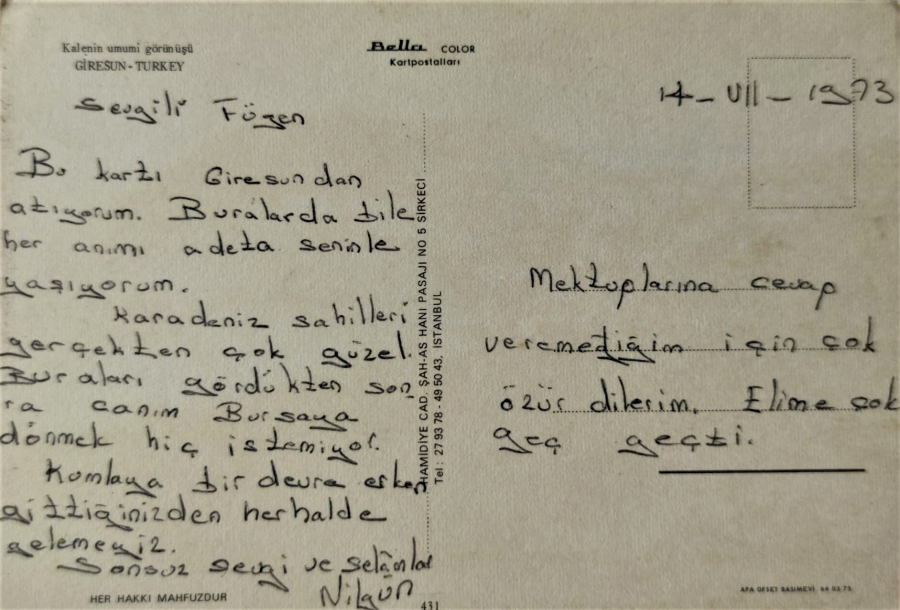 Kalenin umumi görünüşü
GİRESUN - TURKEY
Bella COLOR
Kartpostalları
14 - VII - 1973
Sevgili Füzen
Bu kartı Giresundan
atıyorum. Buralarda bile
her anımı adeta seninle
yaşıyorum.
Karadeniz sahilleri
gerçekten çok güzel.
Buraları gördükten son
ra canım Bursaya
dönmek hiç istemiyor.
Kumlaya bir devre erken
gittiğinizden herhalde
gelemeyiz.
Sonsuz sevgi ve selâmlar
Nilgün
HAMİDİYE CAD. ŞAH-AS HANI PASAJI NO 5 SİRKECİ
Tel : 27 93 78 - 49 50 43, İSTANBUL
Mektuplarına cevap
veremediğim için çok
özür dilerim. Elime çok
geç geçti.
HER HAKKI MAHFUZDUR
431
APA OFSET BASIMEVİ